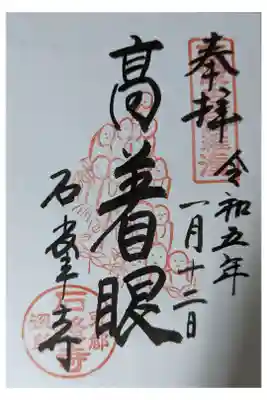 奉拝
令和五年
一月十二日
高着眼
石峯寺